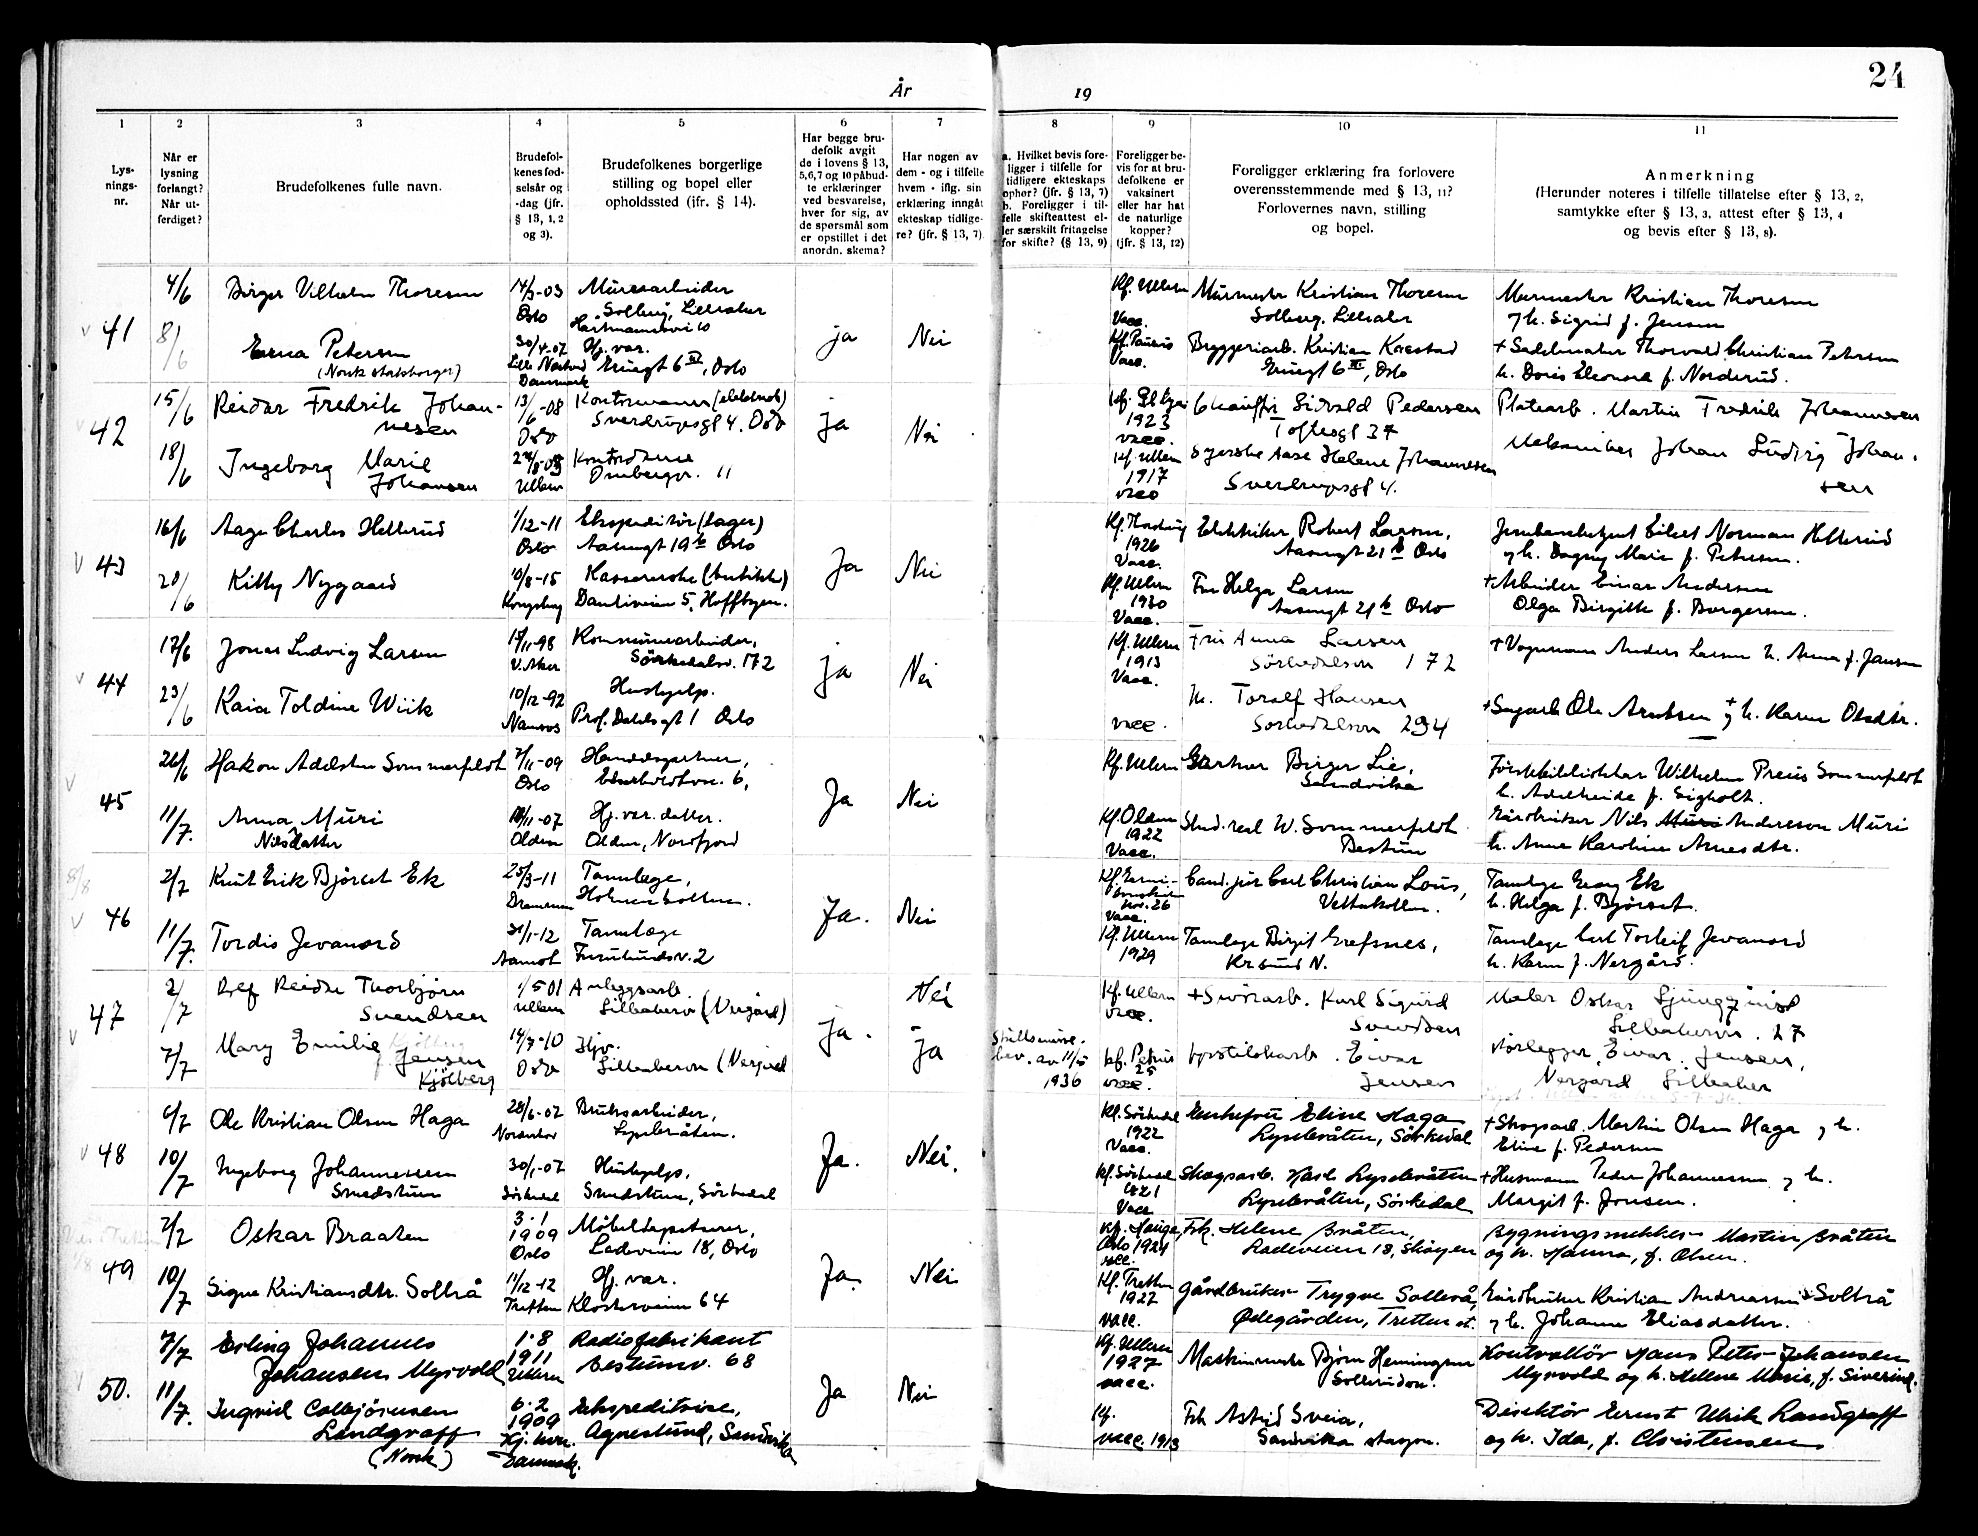 24
År
19
1
2
3
4
5
6
7
8
9
10
11
Lys-
nings-
nr.
Når er
lysning
forlangt?
Når ut-
ferdiget?
Brudefolkenes fulle navn.
Brudefol-
kenes fød-
selsår og
-dag (jfr.
§ 13, 1, 2
og 3).
Brudefolkenes borgerlige
stilling og bopel eller
opholdssted (jfr. § 14).
Har begge bru-
defolk avgit
de i lovens § 13,
5,6,7 og 10 påbud-
te erklæringer
ved besvarelse,
hver for sig, av
de spørsmål som
er opstillet i det
anordn. skema?
Har nogen av
dem - og i tilfelle
hvem - iflg. sin
erklæring inngåt
ekteskap tidlige-
re? (jfr. § 13, 7)
a. Hvilket bevis fore-
ligger i tilfelle for
tidligere ekteskaps
ophør? (jfr. § 13, 7)
b. Foreligger i til-
felle skifteattest el-
ler særskilt fritagelse
for skifte? (§ 13, 9)
Foreligger be-
vis for at bru-
defolkene er
vaksinert
eller har hat
de naturlige
kopper?
(jfr. § 13, 12)
Foreligger erklæring fra forlovere
overensstemmende med § 13, 11?
Forlovernes navn, stilling
og bopel.
Anmerkning
(Herunder noteres i tilfelle tillatelse efter § 13, 2,
samtykke efter § 13, 3, attest efter § 13, 4
og bevis efter § 13, 8).
41
4/6
8/6
Birger Vilhelm Thoresen
Erna Petersen
(Norsk statsborger)
14/3-03
Oslo
30/4-07
Danmark
Murerarbeider
Solberg, Lilleaker
Hj. var.
Eriksgt 6 IV, Oslo
ja
Nei
Kf. Ullern
Vacc.
Kf. Paulus
Vacc.
Murmester Kristian Thoresen
Solberg, Lilleaker
Bryggeriarb. Kristian Korestad
Oslo
Murmester Kristian Thoresen
og h. Sigrid f. Jensen
+ Sadelmaker Thorvald Christian Petersen
h. Doris Eleonora f. Norderud.
42
15/6
18/6
Reidar Fredrik Johan-
nesen
Ingeborg Marie
Johansen
13/6-08
Oslo
Ullern
Sverdrupsgt 4. Oslo
Kontordame
11
ja
Nei
1923
vacc.
Kf. Ullern
1917
vacc
Chauffør Sivald Pedersen
Toftesgt 37
Syerske Aase Helene Johannesen
Sverdrupsgt 4.
Platearb. Martin Fredrik Johannesen
Mekaniker Johan Ludvig Johan-
sen
43
16/6
20/6
Aage Charles Hellerud
Kitty Nygaard
1/12-11
Oslo
10/8-15
Kongsberg
Ekspeditør (lager)
Aasengt 19 b Oslo
Kassererske (butikk)
5, Hoffbyen.
Ja
Nei
1926
Vacc.
Kf. Ullern
1930
Vacc.
Elektriker Robert Larsen,
Aasengt 21 b Oslo
Fru Helga Larsen
Aasengt 21 b Oslo
Jernbanebetjent Eilert Norman Hellerud
og h. Dagny Marie f. Petersen.
+ Arbeider Einar Andersen
Olga Birgitte f. Borgersen.
44
17/6
23/6
Jonas Ludvig Larsen
Kaia Toldine Wiik
15/11-98
V. Aker
10/12-92
Namsos
Kommunearbeider,
Sørkedalsv. 172
Hushjelp.
Prof. Dahlsgt 1 Oslo
ja
Nei
Kf. Ullern
1913
Vacc.
vacc.
Fru Anna Larsen
Sørkedalsvn 172
Hr. Toralf Hansen
Sørkedalsvn 294
+ Vognmann Anders Larsen h. Anna f. Jansen
+ Sagarb Ole Arntsen + og h. Karen Olsdtr.
45
26/6
11/7.
Hakon Adelsten Sommerfeldt
Anna Muri
Nilsdatter
7/11-09
Oslo
11-07
Olden
Handelsgartner,
6,
Hj. var. datter.
Olden, Nordfjord
Ja
Nei
Kf. Ullern
Kf. Olden
1922
Vacc.
Gartner Birger Lie,
Sandvika
Stud. real W. Sommerfeldt
Bestum
Førstebibliotekar Wilhelm Preus Sommerfeldt
h. Adelheide f. Sigholt.
Gårdbruker Nils Anderssen Muri
h. Anne Karoline Arnesdtr.
46
2/7
11/7.
Knut Erik Bjørset Ek
Tordis Jevanord
25/3-11
Drammen
31/1-12
Aamot
Tannlege,
Holmenkollen.
Tannlege
Furulundsv. 2
Ja.
Nei
Nov. 26
Vacc.
Kf. Ullern
1929
Cand. jur Carl Christian Lous,
Vettakollen.
Tannlege Birgit Grefsnes,
Kr.sund N.
Tannlege Georg Ek
h. Helga f. Bjørset.
Tannlege Carl Torleif Jevanord
h. Karen f. Nergård.
47
2/7
7/7
Reidar Thorbjørn
Svendsen
Mary Emilie
f. Jensen
Kjølberg
1/5 01
Ullern
14/7-10
Oslo
Anleggsarb.
Lilleakervn (Nergård)
Hjv.
Lilleakervn (Nergård
ja.
Nei
ja
1936
Kf. Ullern
vacc.
Kf. Petrus
25
vacc.
Karl Sigurd
Svendsen
Eivar
Jensen
Maler Oskar Ljungqvist
Lilleakervn. 27
Rørlegger Eivar Jensen,
Nergård Lilleaker
48
6/7
10/7
Ole Kristian Olsen Haga
Ingeborg Johannessen
Smedstuen
28/6-07
30/1-07
Sørkedal
Bruksarbeider,
Lysebråten.
Hushjelp.
Smedstuen, Sørkedal
Ja.
Nei.
Kf. Sørkedal
1922
Vacc.
Kf. Sørkedal
1921
Vacc
Enkefru Eline Haga
Lysebråten, Sørkedal
Skogsarb. Karl Lysebråten
Lysebråten, Sørkedal
+ Skogsarb. Martin Olsen Haga og h.
Eline f. Pedersen
+ Husmann Peder Johannessen og h.
Margit f. Jonsen.
49
7/7
10/7
Oskar Braaten
Signe Kristiansdtr. Solbrå
3. 1
1909
Oslo
11/12-12
Tretten
Møbeltapetserer,
Ladeveien 18, Oslo
Hj. var.
Klosterveien 64
Ja.
Nei
Kf. Hauge,
Oslo 1924
vacc.
Kf. Tretten
1927
vacc.
Frk. Helene Bråten,
Ladeveien 18, Skøyen
Gårdbruker Trygve Solbrå,
Ødegården, Tretten st.
Bygningssnekker Martin Bråten
og h. Hanna, f. Olsen.
Gårdbruker Kristian Andreassen Solbrå
og h. Johanne Eliasdatter.
50.
7/7
11/7.
Erling Johannes
Johansen Myrvold
Ingrid Colbjørnsen
Landgraff
(Norsk)
1. 8
1911
Ullern
6. 2
1909
Danmark.
Radiofabrikant
Bestumv. 68
Ekspeditrise,
Agneslund, Sandvika
Ja
Nei
Kf. Ullern
1927
vacc.
Kf.
vacc. 1913
Maskinmester Bjørn Henningsen
Frk Astrid Sveia,
Sandvika stasjon.
Kontrollør Hans Peter Johansen
Myrvold og h. Helene Marie, f. Siverind.
Direktør Ernst Ulrik Landgraff
og h. Ida, f. Christensen